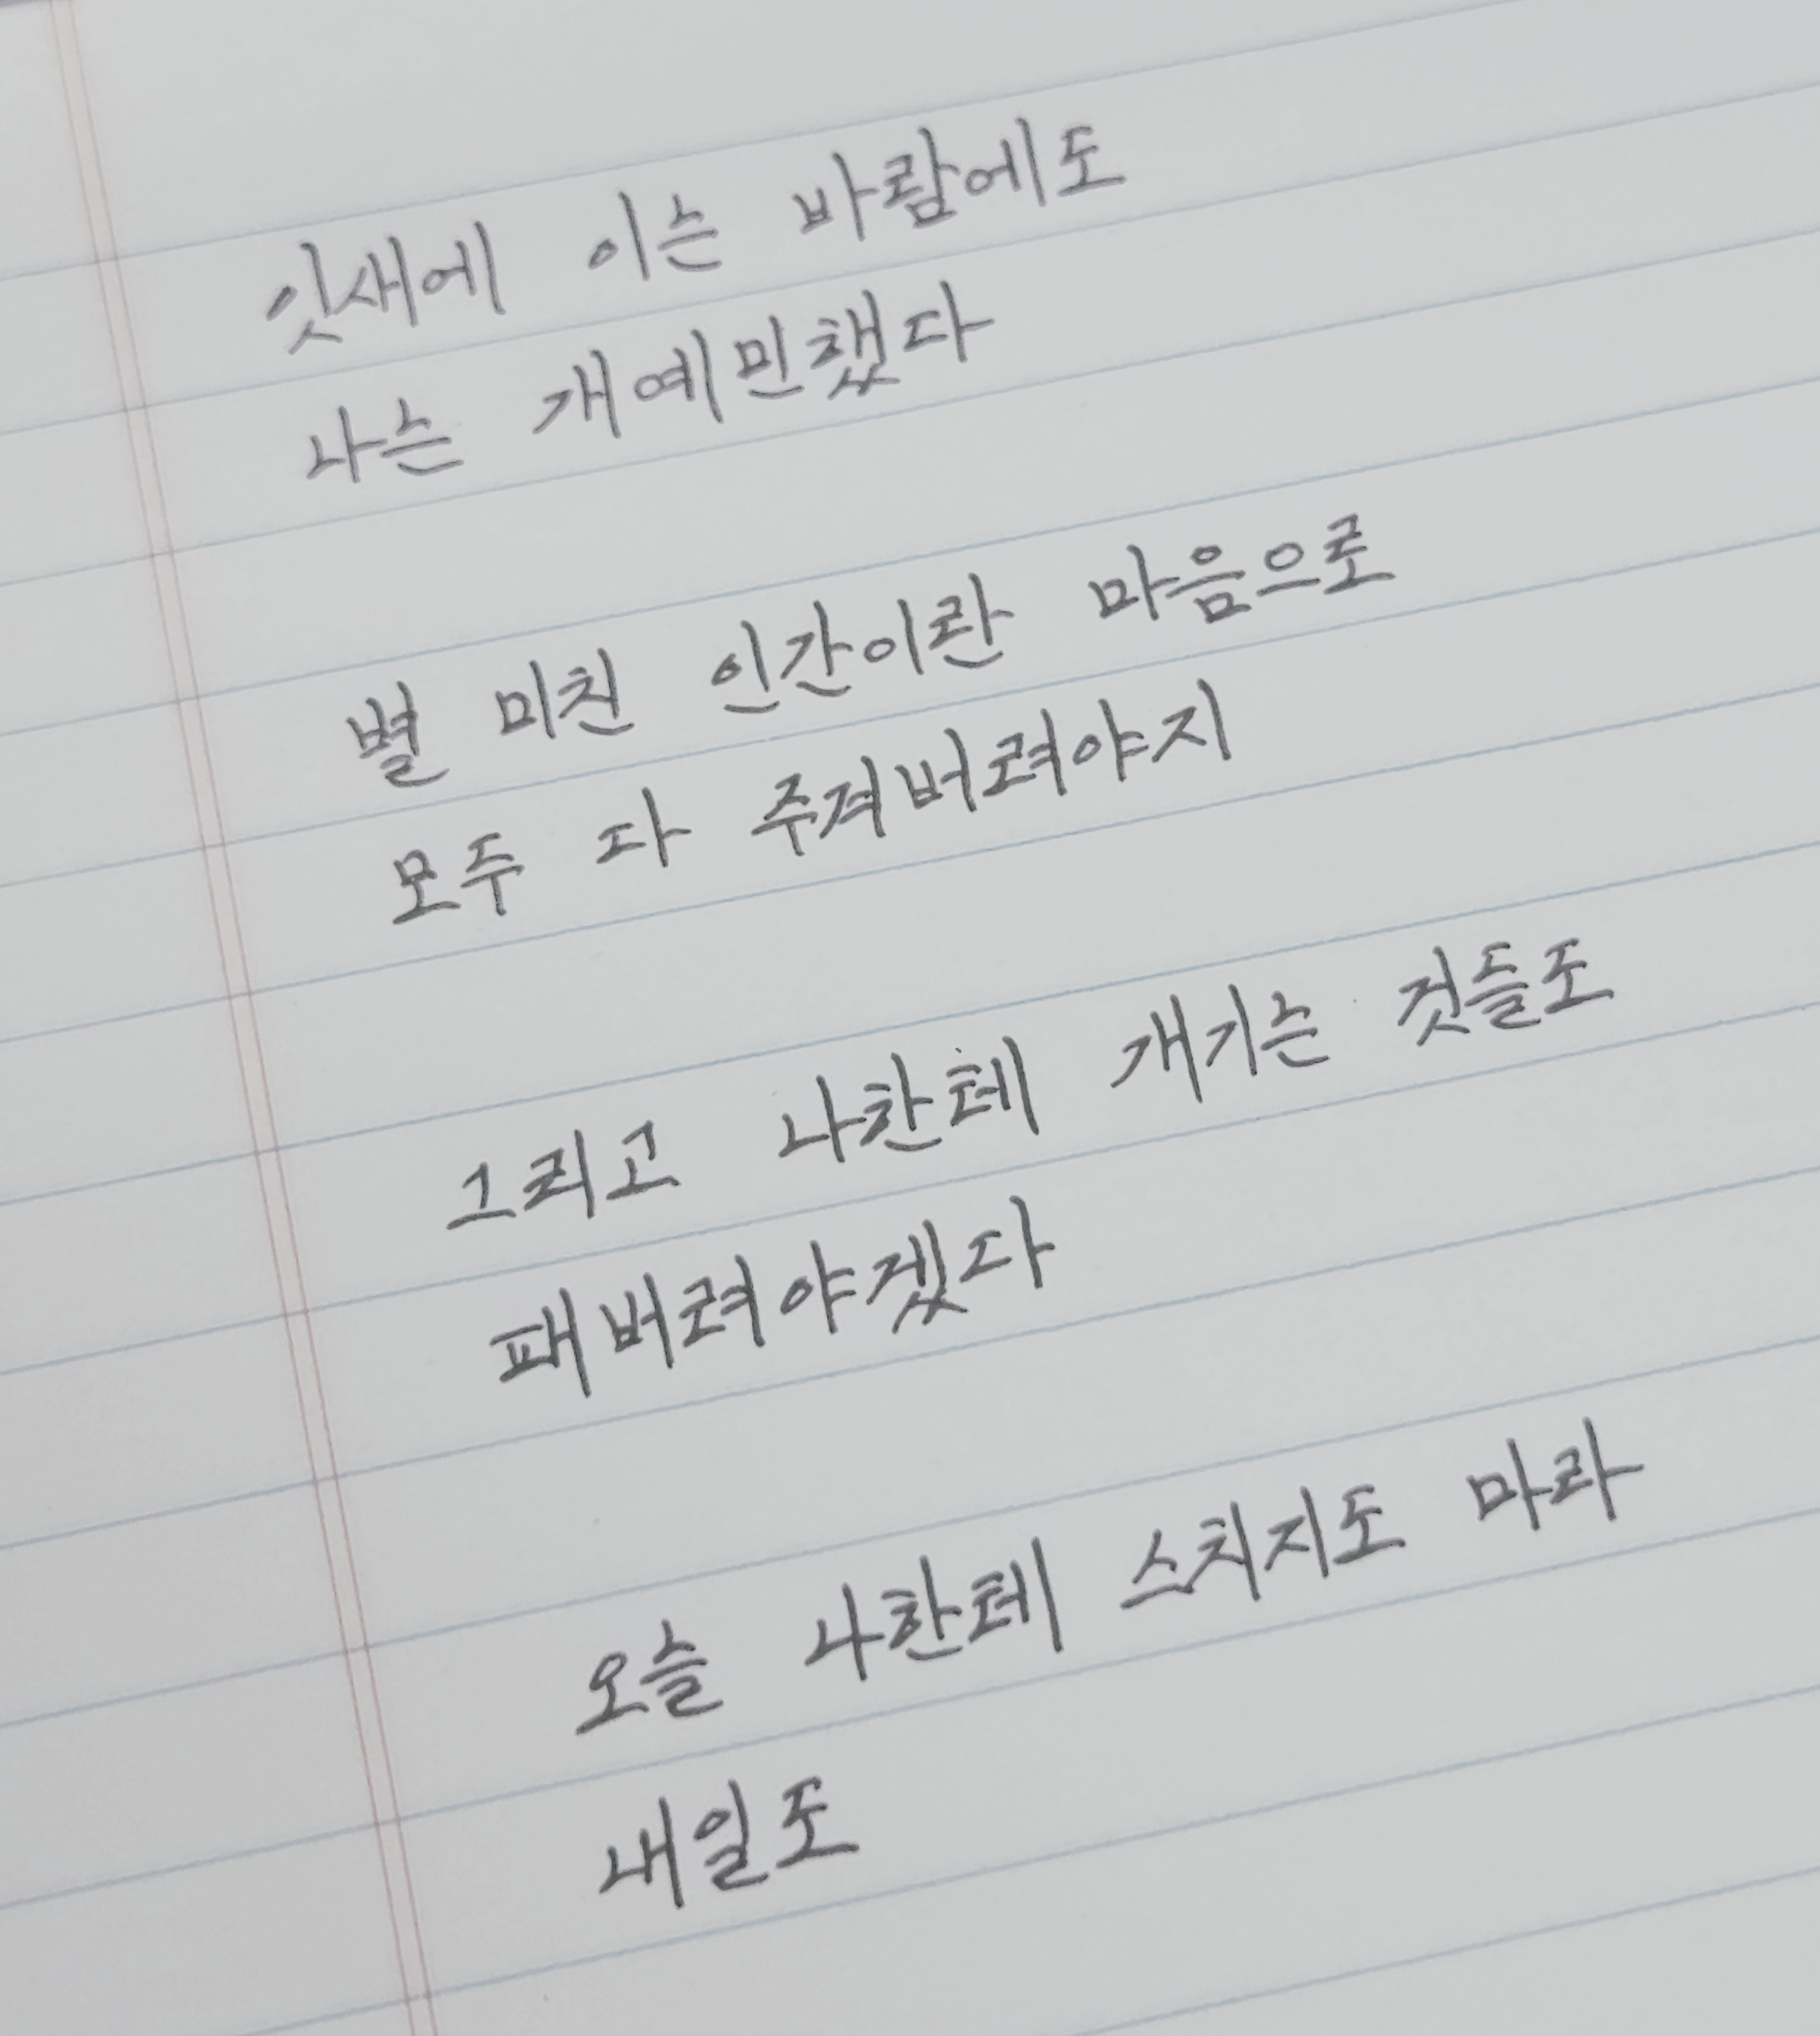 잇새에 이는 바람에도
나는 개예민했다
별 미친 인간이란 마음으로
모두 다 주겨버려야지
그리고 나한테 개기는 것들도
패버려야겠다
오늘 나한테 스치지도 마라
내일도